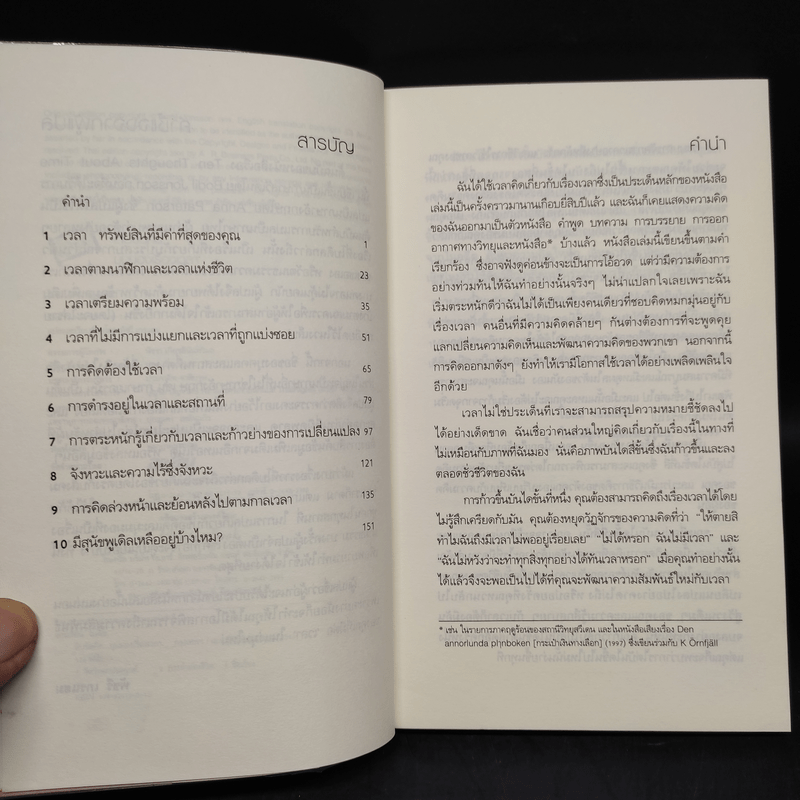 สารบัญ
คำนำ
1 เวลา ทรัพย์สินที่มีค่าที่สุดของคุณ 1
2 เวลาตามนาฬิกาและเวลาแห่งชีวิต 23
3 เวลาเตรียมความพร้อม 35
4 เวลาที่ไม่มีการแบ่งแยกและเวลาที่ถูกแบ่งซอย 51
5 การคิดต้องใช้เวลา 65
6 การดำรงอยู่ในเวลาและสถานที่ 79
7 การตระหนักรู้เกี่ยวกับเวลาและก้าวย่างของการเปลี่ยนแปลง 97
8 จังหวะและความไร้ซึ่งจังหวะ 121
9 การคิดล่วงหน้าและย้อนหลังไปตามกาลเวลา 135
10 มีสุนัขพูเดิลเหลืออยู่บ้างไหม? 151
คำนำ
ฉันได้ใช้เวลาคิดเกี่ยวกับเรื่องเวลาซึ่งเป็นประเด็นหลักของหนังสือ
เล่มนี้เป็นครั้งคราวมานานเกือบยี่สิบปีแล้ว และฉันก็เคยแสดงความคิด
ของฉันออกมาเป็นตัวหนังสือ คำพูด บทความ การบรรยาย การออก
อากาศทางวิทยุและหนังสือ* บ้างแล้ว หนังสือเล่มนี้เขียนขึ้นตามคำ
เรียกร้อง ซึ่งอาจฟังดูค่อนข้างจะเป็นการโอ้อวด แต่ว่ามีความต้องการ
อย่างท่วมท้นให้ฉันทำอย่างนั้นจริงๆ ไม่น่าแปลกใจเลยเพราะฉัน
เริ่มตระหนักดีว่าฉันไม่ได้เป็นเพียงคนเดียวที่ชอบคิดหมกมุ่นอยู่กับ
เรื่องเวลา คนอื่นที่มีความคิดคล้ายๆ กันต่างต้องการที่จะพูดคุย
แลกเปลี่ยนความคิดเห็นและพัฒนาความคิดของพวกเขา นอกจากนี้
การคิดออกมาดังๆ ยังทำให้เรามีโอกาสใช้เวลาได้อย่างเพลิดเพลินใจ
อีกด้วย
เวลาไม่ใช่ประเด็นที่เราจะสามารถสรุปความหมายชี้ชัดลงไป
ได้อย่างเด็ดขาด ฉันเชื่อว่าคนส่วนใหญ่คิดเกี่ยวกับเรื่องนี้ในทางที่
ไม่เหมือนกับภาพที่ฉันมอง นั่นคือภาพบันไดสี่ขั้นซึ่งฉันก้าวขึ้นและลง
ตลอดชั่วชีวิตของฉัน
การก้าวขึ้นบันไดขั้นที่หนึ่ง คุณต้องสามารถคิดถึงเรื่องเวลาได้โดย
ไม่รู้สึกเครียดกับมัน คุณต้องหยุดวัฏจักรของความคิดที่ว่า "ให้ตายสิ
ทำไมฉันถึงมีเวลาไม่พออยู่เรื่อยเลย" "ไม่ได้หรอก ฉันไม่มีเวลา" และ
"ฉันไม่หวังว่าจะทำทุกสิ่งทุกอย่างได้ทันเวลาหรอก" เมื่อคุณทำอย่างนั้น
ได้แล้วจึงจะพอเป็นไปได้ที่คุณจะพัฒนาความสัมพันธ์ใหม่กับเวลา
* เช่น ในรายการภาคฤดูร้อนของสถานีวิทยุสวีเดน และในหนังสือเสียงเรื่อง Den
annorlunda plånboken [กระเป๋าเงินทางเลือก] (1997) ซึ่งเขียนร่วมกับ K Örnfjäll